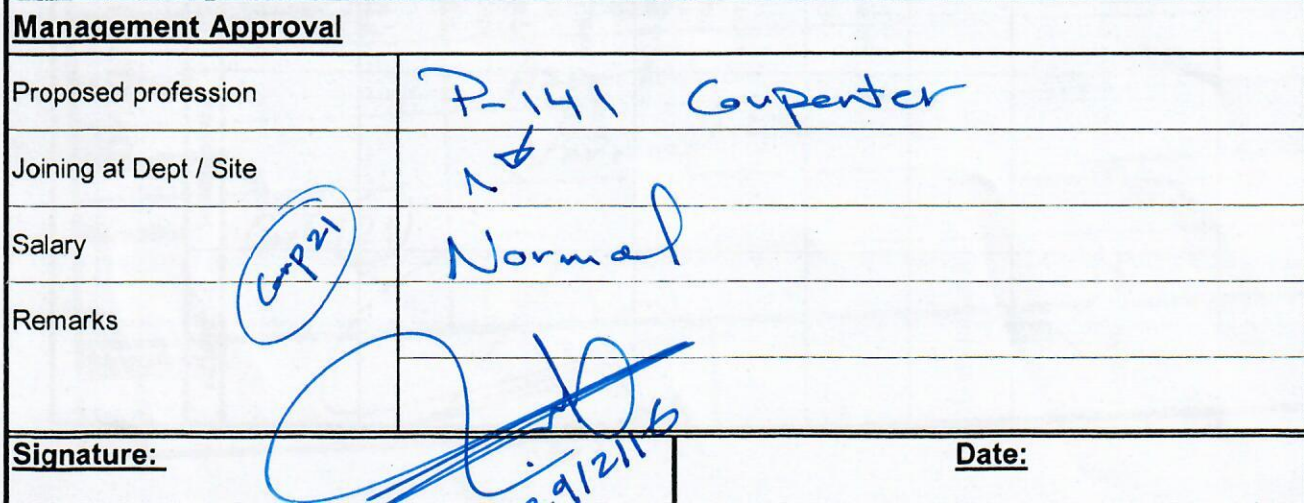 Management Approval
Proposed profession P-141 Coupenter
Joining at Dept / Site
Salary Normal
Remarks
Signature: Date: